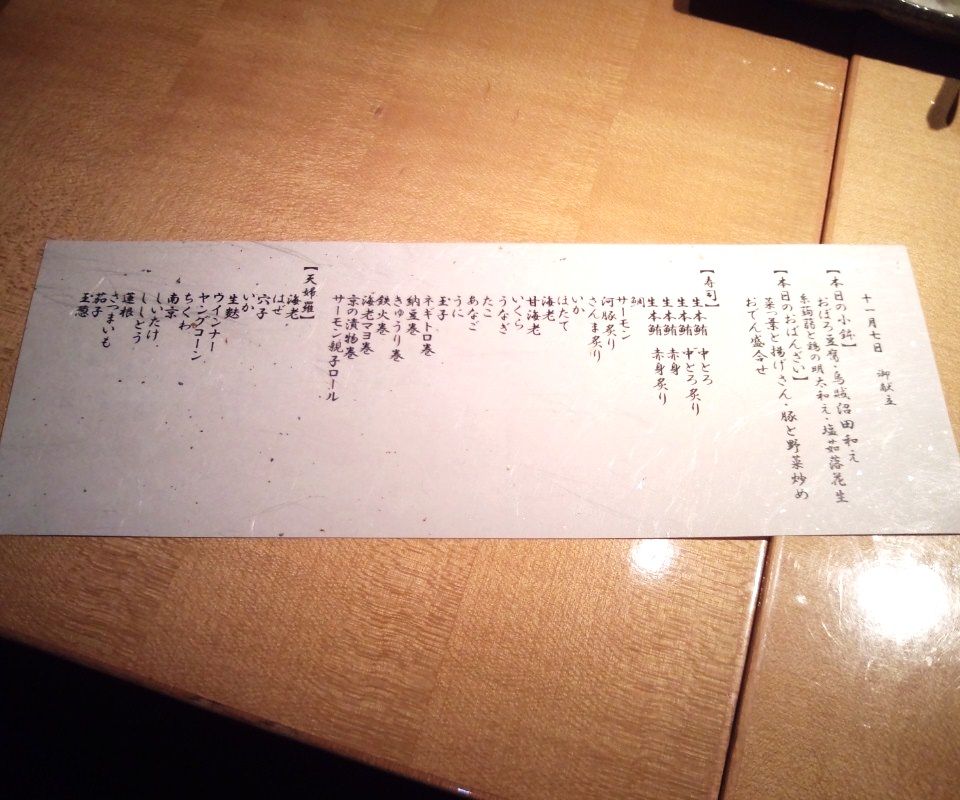 十一月七日　御献立
【本日の小鉢】
おぼろ豆腐・烏賊沼田和え
糸蒟蒻と鶏の明太和え・塩茹落花生
【本日のおばんざい】
菜っ葉と揚げさん・豚と野菜炒め
おでん盛合せ
【寿司】
生本鮪　中とろ
生本鮪　中とろ炙り
生本鮪　赤身
生本鮪　赤身炙り
鯛
サーモン
河豚炙り
さんま炙り
はたて
いか
海老
甘海老
いくら
うなぎ
たこ
あなご
うに
玉子
ネギトロ巻
納豆巻
きゅうり巻
鉄火巻
海老マヨ巻
京の漬物巻
サーモン親子ロール
【天婦羅】
海老
はぜ
穴子
いか
生麩
ウインナー
ヤングコーン
ちくわ
南京
しいたけ
ししとう
蓮根
さつまいも
茄子
玉葱